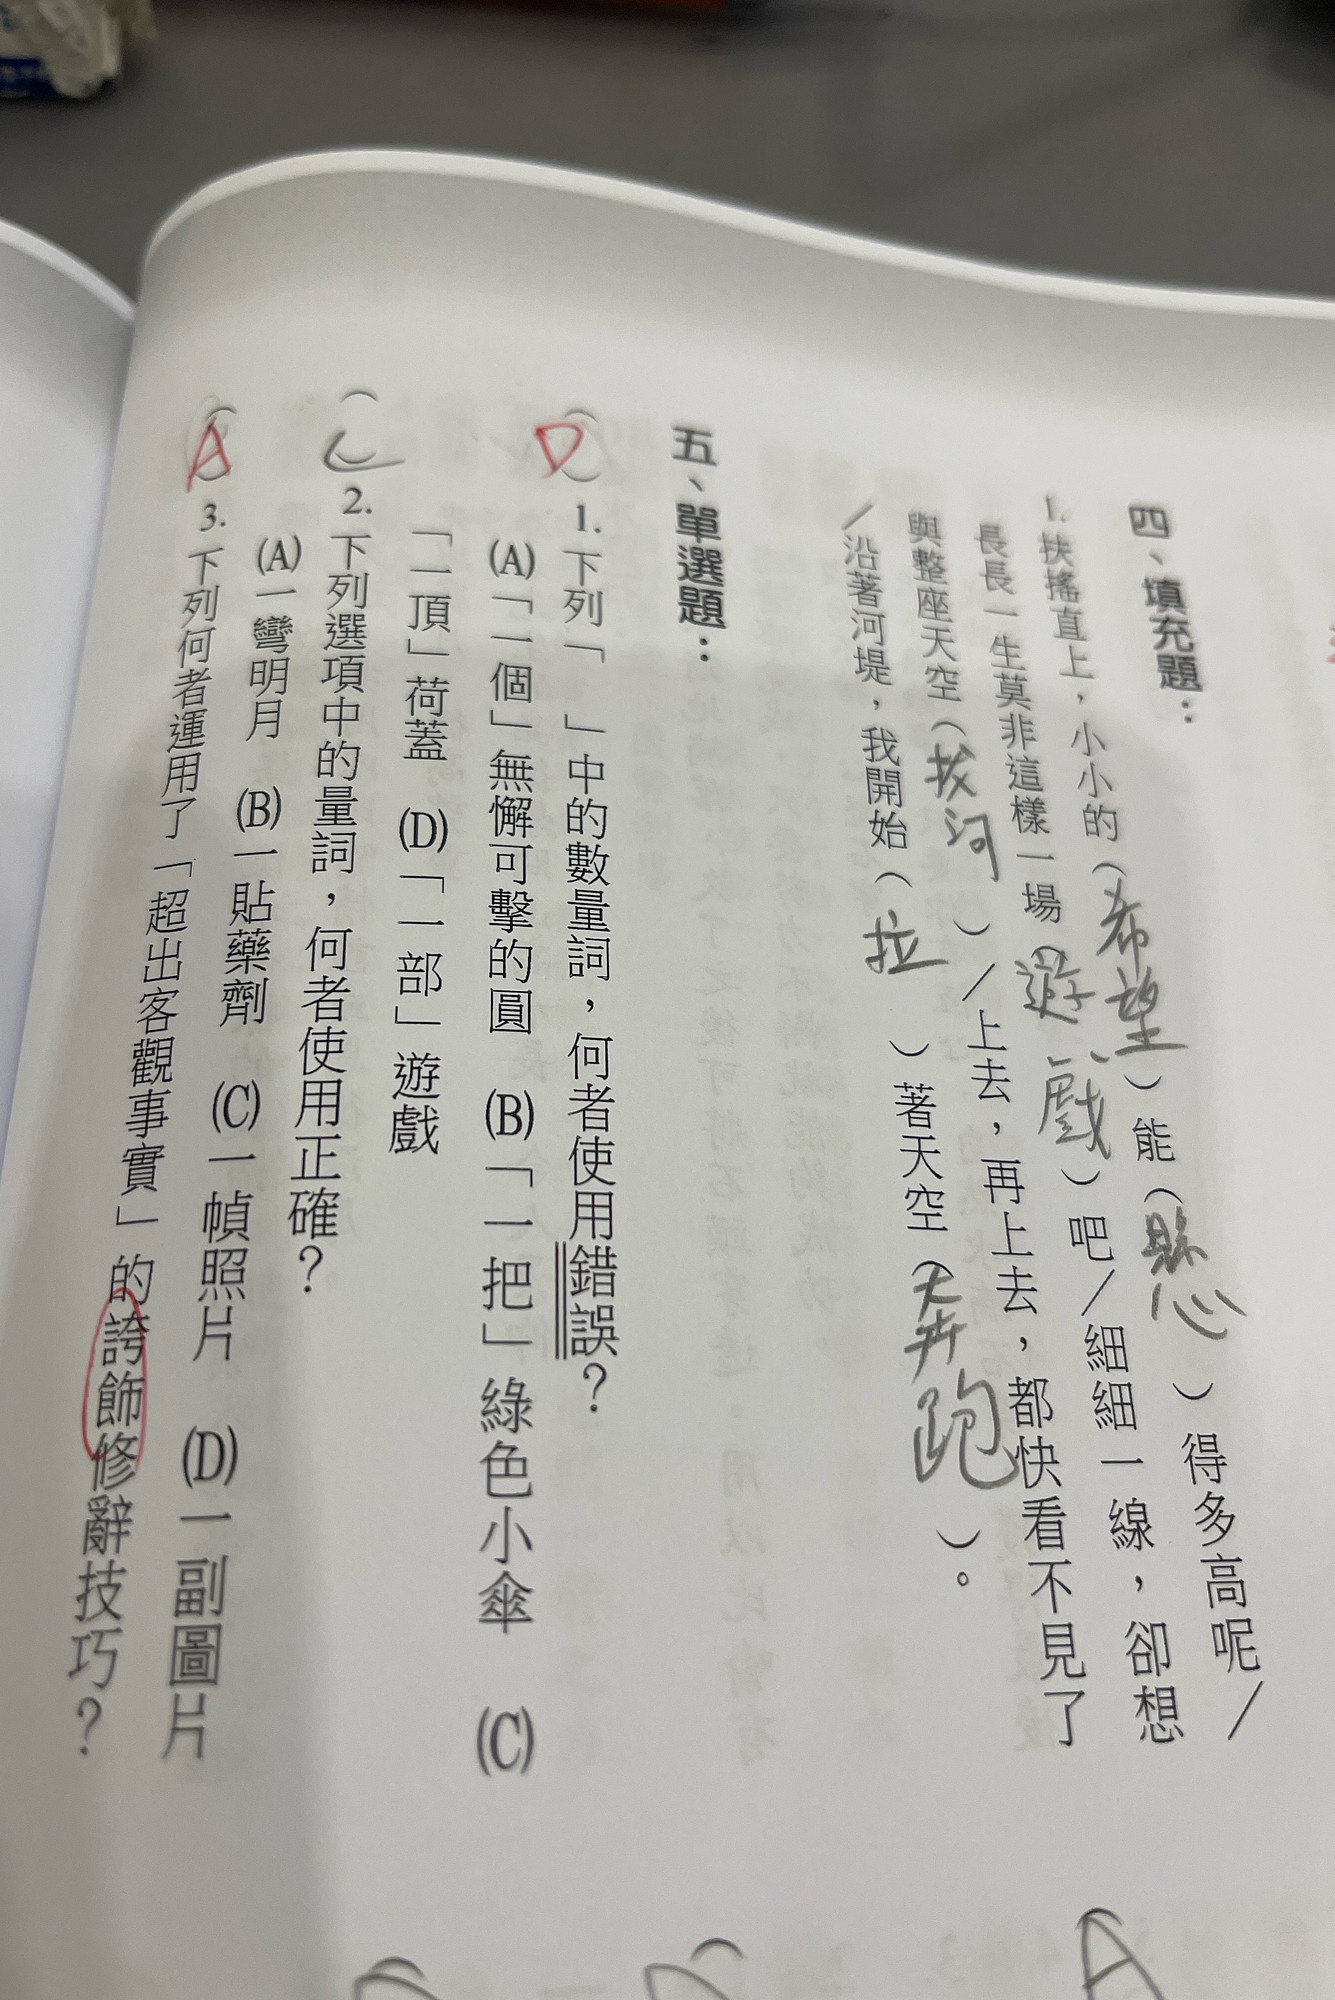 四、填充題：
1.扶搖直上，小小的（希望）能（懸）得多高呢／
長長一生莫非這樣一場（遊戲）吧／細細一線，卻想
與整座天空（拔河）／上去，再上去，都快看不見了
／沿著河堤，我開始（拉）著天空（奔跑）。
五、單選題：
（D）1.下列「　」中的數量詞，何者使用錯誤？
(A)「一個」無懈可擊的圓　(B)「一把」綠色小傘　(C)
「一頂」荷蓋　(D)「一部」遊戲
（C）2.下列選項中的量詞，何者使用正確？
(A)一彎明月　(B)一貼藥劑　(C)一幀照片　(D)一副圖片
（A）3.下列何者運用了「超出客觀事實」的誇飾修辭技巧？
A